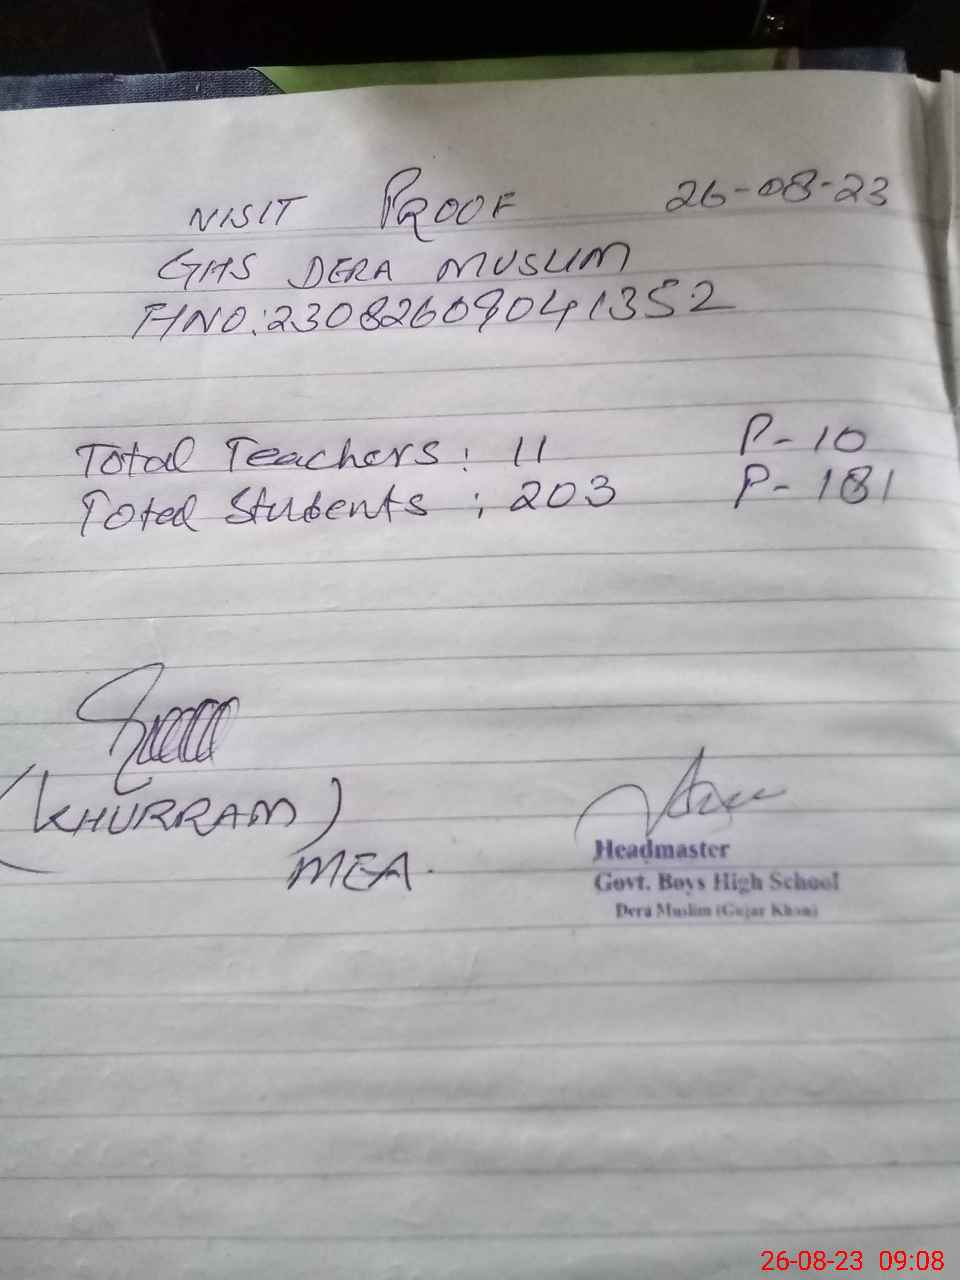 VISIT PROOF 26-08-23
GHS DERA MUSLIM
FHNO:23082609041352
Total Teachers: 11 P-10
Total Students: 203 P-181
(KHURRAM)
MEA.
Headmaster
Govt. Boys High School
Dera Muslim (Gujar Khan)
26-08-23 09:08